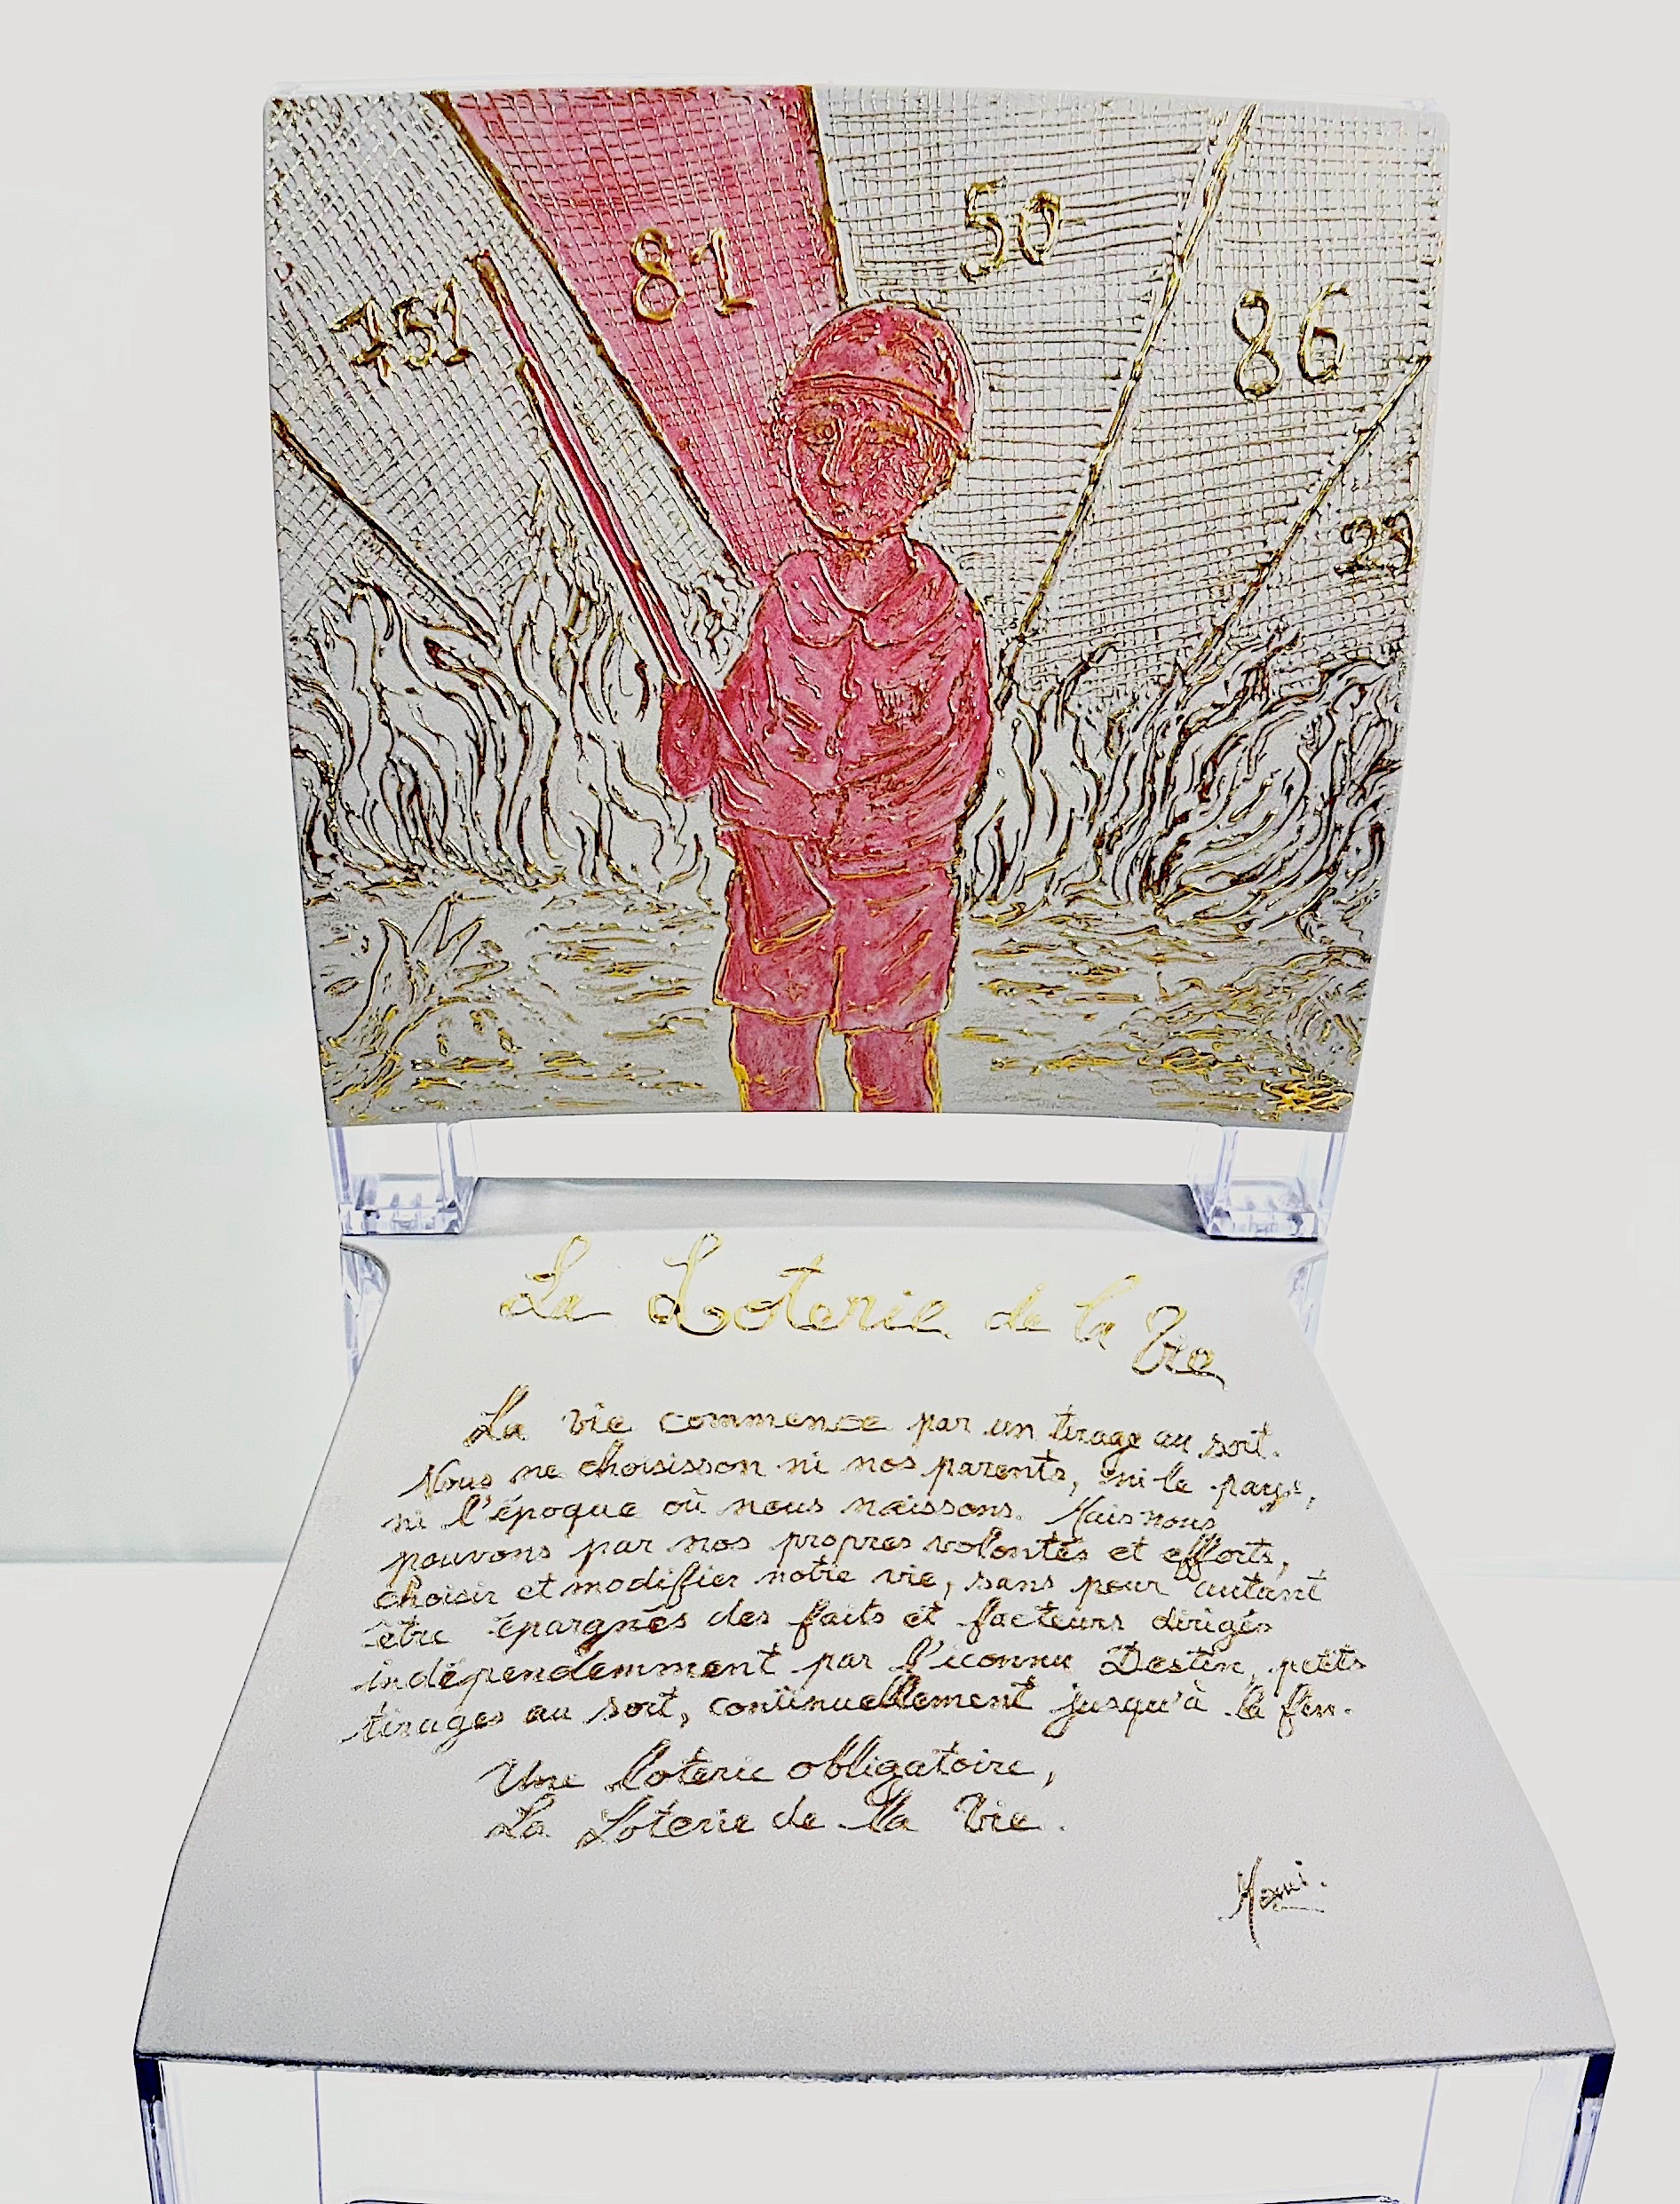 751
81
50
86
29
La Loterie de la Vie
La vie commence par un tirage au sort.
Nous ne choisisson ni nos parents, ni le pays,
ni l'époque où nous naissons. Mais nous
pouvons par nos propres volontés et efforts,
choisir et modifier notre vie, sans pour autant
être épargnés des faits et facteurs dirigés
indépendemment par l'iconnu Destin, petits
tirages au sort, continuellement jusqu'à la fin.
Une loterie obligatoire,
La Loterie de la Vie.